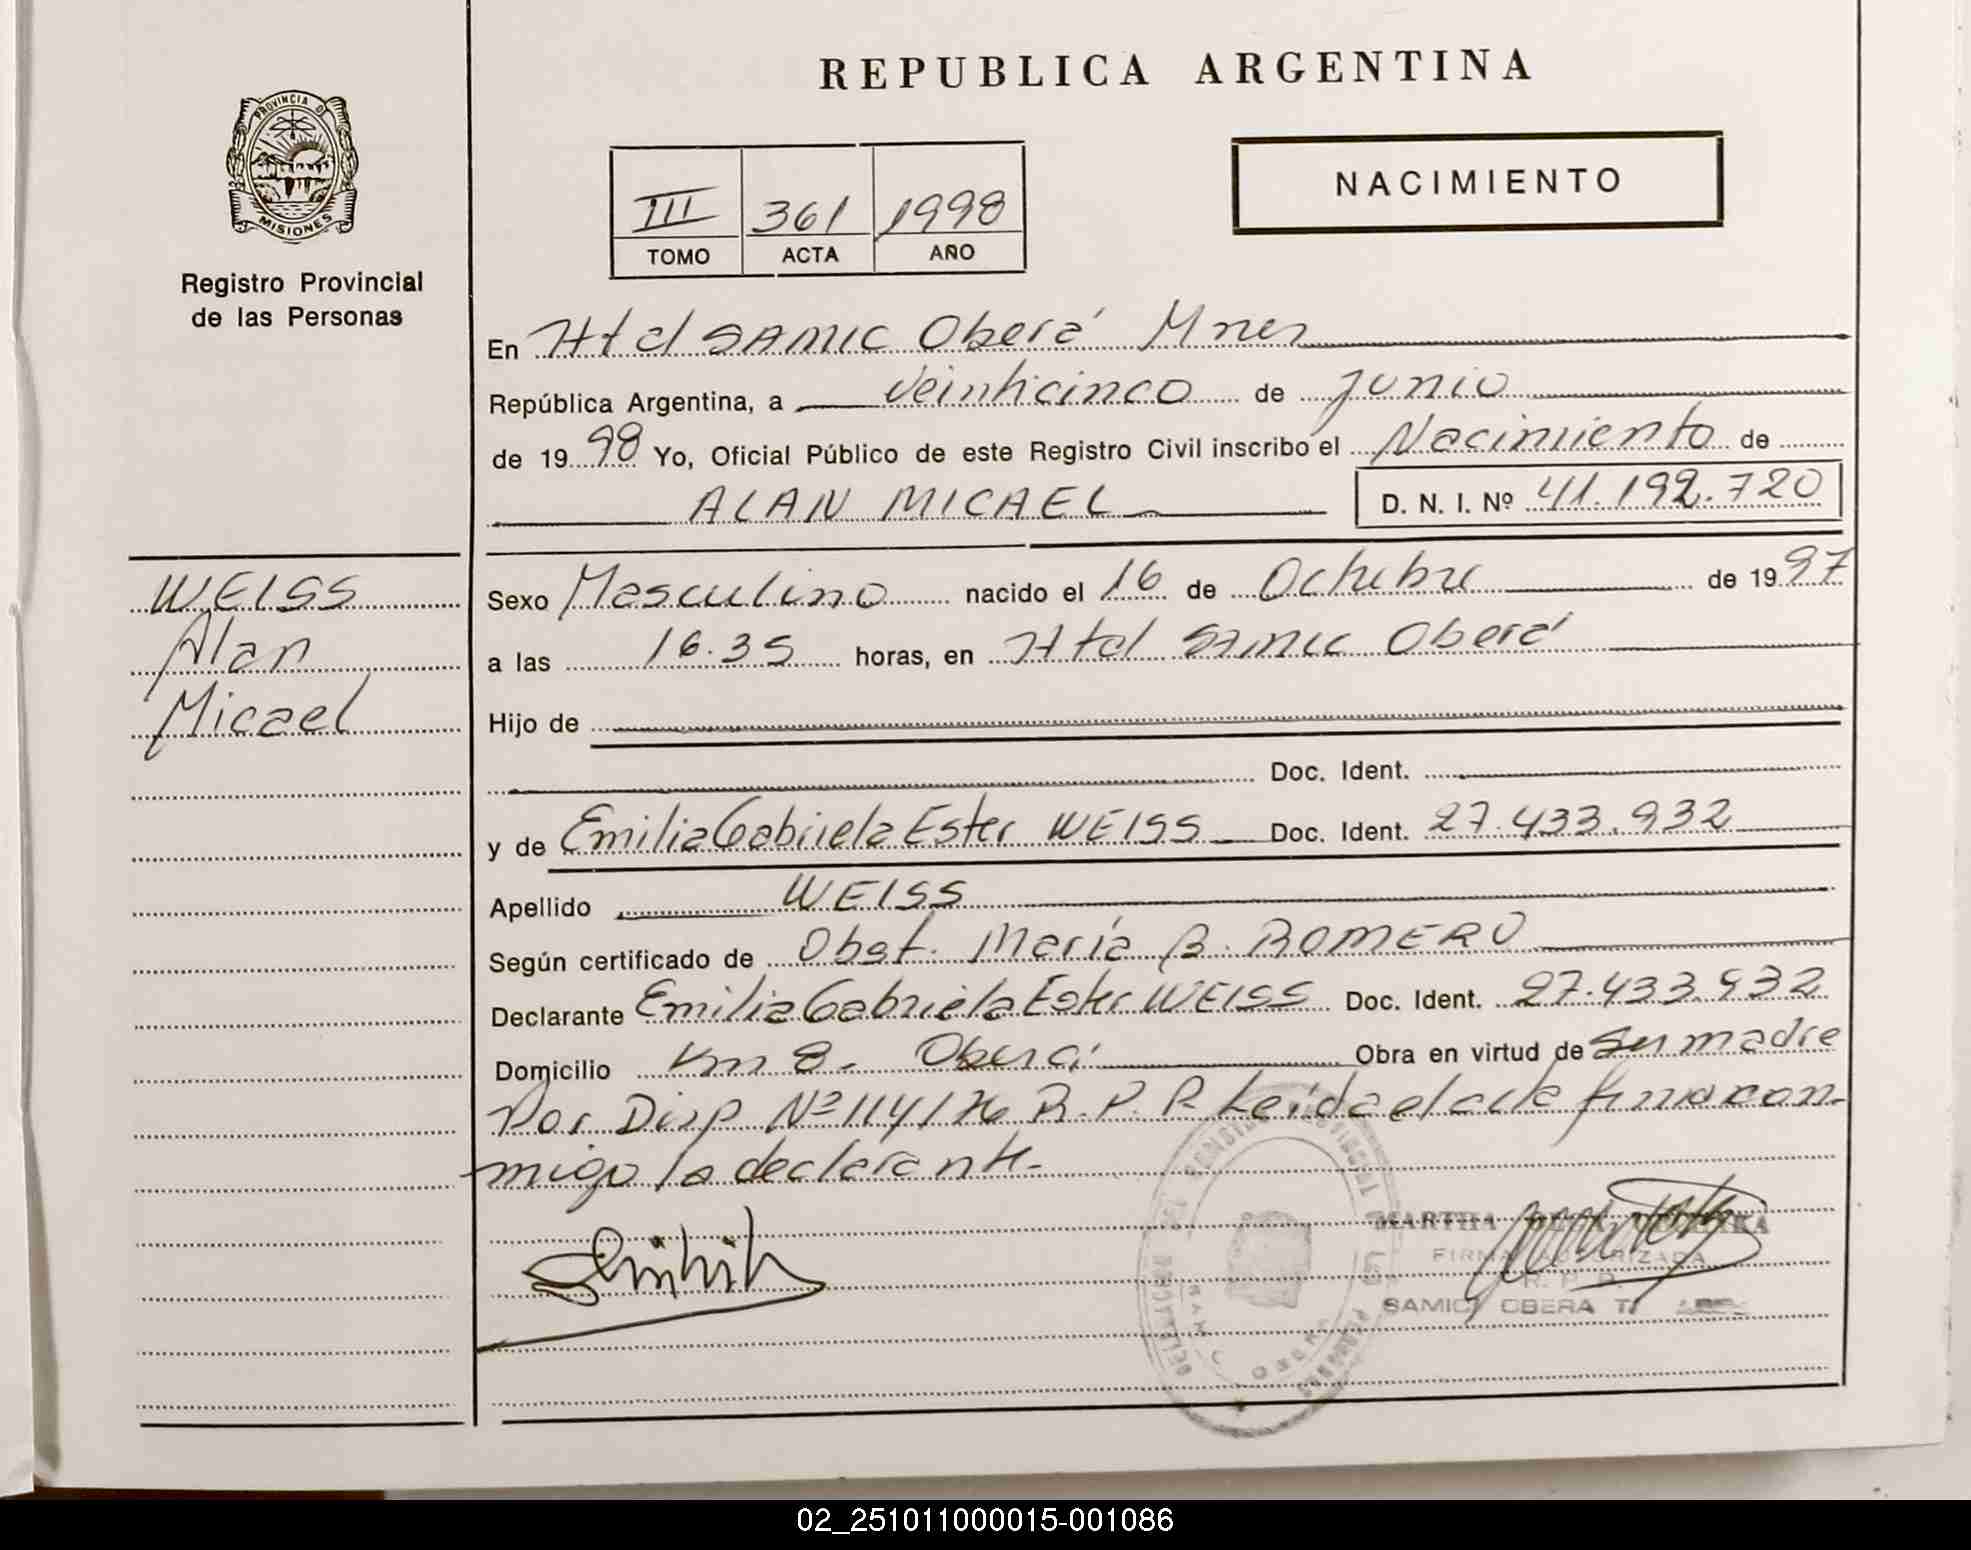 REPUBLICA ARGENTINA
PROVINCIA DE
MISIONES
Registro Provincial
de las Personas
NACIMIENTO
III 361 1998
TOMO ACTA AÑO
En Htal SAMIC Oberá Mnes
República Argentina, a veinticinco de junio
de 1998 Yo, Oficial Público de este Registro Civil inscribo el Nacimiento de
ALAN MICAEL D. N. I. Nº 41.192.720
WEISS
Alan
Micael
Sexo Masculino nacido el 16 de Octubre de 1997
a las 16.35 horas, en Htal SAMIC Oberá
Hijo de
Doc. Ident.
y de Emilia Gabriela Ester WEISS Doc. Ident. 27.433.932
Apellido WEISS
Según certificado de Obst. María B. ROMERO
Declarante Emilia Gabriela Ester WEISS Doc. Ident. 27.433.932
Domicilio Km 8. Oberá Obra en virtud de Su madre
Por Disp Nº 114/76 R.P.P. Leída el acta firma con-
migo la declarante.
MARTHA
FIRMA AUTORIZADA
R. P. P.
SAMIC OBERA
02_251011000015-001086